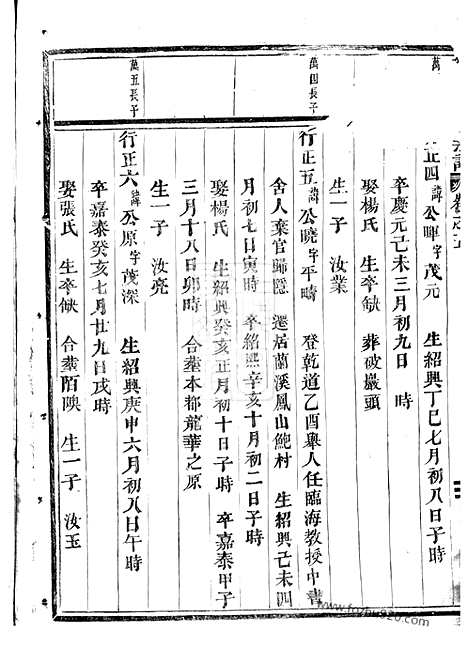 正四 諱 公暉 字 茂元 生紹興丁巳七月初八日子時
卒慶元己未三月初九日 時
娶楊氏 生卒缺 葬破巖頭
生一子 汝業
萬四長子
行正五 諱 公曉 字 平疇 登乾道乙酉舉人任臨海教授中書
舍人棄官歸隱 遷居蘭溪鳳山鮑村 生紹興己未四
月初七日寅時 卒紹熙辛亥十月初二日子時
娶楊氏 生紹興癸亥正月初十日子時 卒嘉泰甲子
三月十八日卯時 合葬本都龍華之原
生一子 汝亮
萬五長子
行正六 諱 公原 字 茂深 生紹興庚申六月初八日午時
卒嘉泰癸亥七月廿九日戌時
娶張氏 生卒缺 合葬陌陝 生一子 汝玉